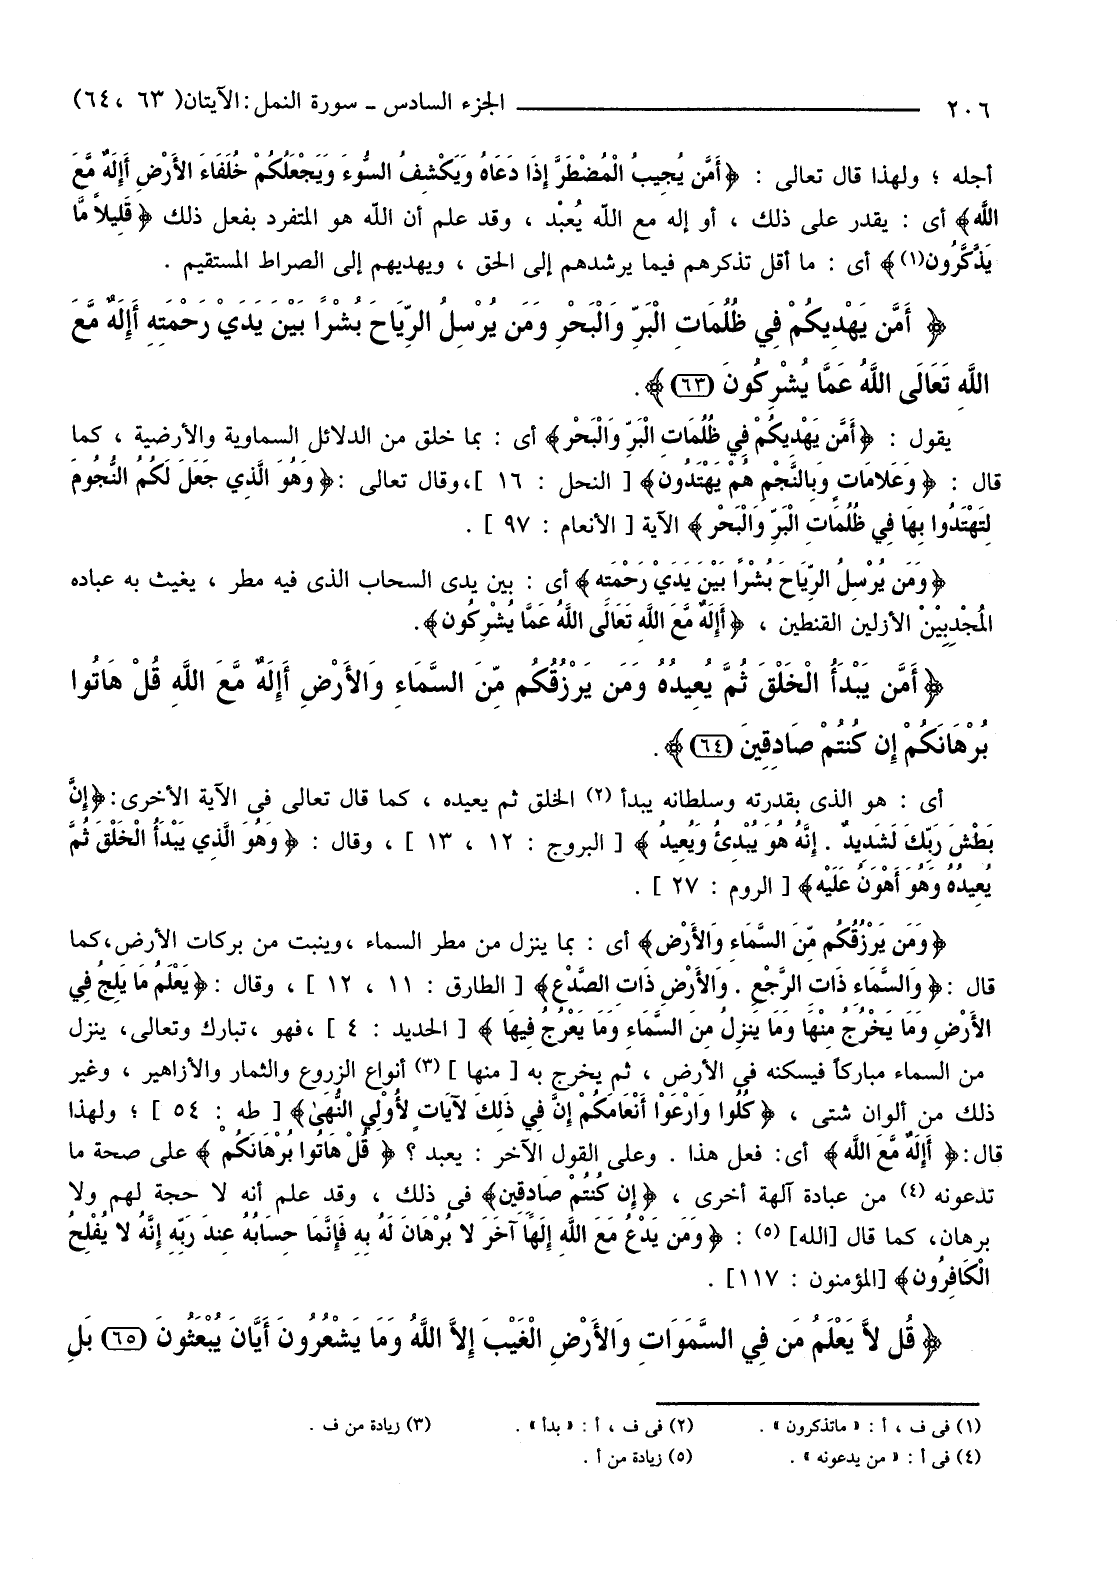 ٢٠٦ ــــــــــــــــــــــــ الجزء السادس ـ سورة النمل : الآيتان( ٦٣ ، ٦٤)
أجله ؛ ولهذا قال تعالى : ﴿أَمَّن يُجِيبُ الْمُضْطَرَّ إِذَا دَعَاهُ وَيَكْشِفُ السُّوءَ وَيَجْعَلُكُمْ خُلَفَاءَ الأَرْضِ أَإِلَهٌ مَّعَ
اللَّه﴾ أى : يقدر على ذلك ، أو إله مع الله يُعبْد ، وقد علم أن الله هو المتفرد بفعل ذلك ﴿ قَلِيلاً مَّا
يَذَّكَّرُون(١)﴾ أى : ما أقل تذكرهم فيما يرشدهم إلى الحق ، ويهديهم إلى الصراط المستقيم .
﴿ أَمَّن يَهْدِيكُمْ فِي ظُلُمَاتِ الْبَرِّ وَالْبَحْرِ وَمَن يُرْسِلُ الرِّيَاحَ بُشْرًا بَيْنَ يَدَيْ رَحْمَتِهِ أَإِلَهٌ مَّعَ
اللَّهِ تَعَالَى اللَّهُ عَمَّا يُشْرِكُونَ (٦٣)﴾ .
يقول : ﴿أَمَّن يَهْدِيكُمْ فِي ظُلُمَاتِ الْبَرِّ وَالْبَحْرِ﴾ أى : بما خلق من الدلائل السماوية والأرضية ، كما
قال : ﴿ وَعَلامَاتٍ وَبِالنَّجْمِ هُمْ يَهْتَدُون﴾ [ النحل : ١٦ ]،وقال تعالى :﴿ وَهُوَ الَّذِي جَعَلَ لَكُمُ النُّجُومَ
لِتَهْتَدُوا بِهَا فِي ظُلُمَاتِ الْبَرِّ وَالْبَحْرِ ﴾ الآية [ الأنعام : ٩٧ ] .
﴿وَمَن يُرْسِلُ الرِّيَاحَ بُشْرًا بَيْنَ يَدَيْ رَحْمَتِه﴾ أى : بين يدى السحاب الذى فيه مطر ، يغيث به عباده
المُجْدِبِيْنَ الأزلين القنطين ، ﴿أَإِلَهٌ مَّعَ اللَّهِ تَعَالَى اللَّهُ عَمَّا يُشْرِكُون﴾.
﴿ أَمَّن يَبْدَأُ الْخَلْقَ ثُمَّ يُعِيدُهُ وَمَن يَرْزُقُكُم مِّنَ السَّمَاءِ وَالأَرْضِ أَإِلَهٌ مَّعَ اللَّهِ قُلْ هَاتُوا
بُرْهَانَكُمْ إِن كُنتُمْ صَادِقِينَ (٦٤)﴾ .
أى : هو الذى بقدرته وسلطانه يبدأ (٢) الخلق ثم يعيده ، كما قال تعالى فى الآية الأخرى:﴿إِنَّ
بَطْشَ رَبِّكَ لَشَدِيدٌ . إِنَّهُ هُوَ يُبْدِئُ وَيُعِيدُ ﴾ [ البروج : ١٢ ، ١٣ ] ، وقال : ﴿ وَهُوَ الَّذِي يَبْدَأُ الْخَلْقَ ثُمَّ
يُعِيدُهُ وَهُوَ أَهْوَنُ عَلَيْه﴾ [ الروم : ٢٧ ] .
﴿وَمَن يَرْزُقُكُم مِّنَ السَّمَاءِ وَالأَرْض﴾ أى : بما ينزل من مطر السماء ،وينبت من بركات الأرض،كما
قال :﴿ وَالسَّمَاءِ ذَاتِ الرَّجْعِ . وَالأَرْضِ ذَاتِ الصَّدْع﴾ [ الطارق : ١١ ، ١٢ ] ، وقال :﴿يَعْلَمُ مَا يَلِجُ فِي
الأَرْضِ وَمَا يَخْرُجُ مِنْهَا وَمَا يَنزِلُ مِنَ السَّمَاءِ وَمَا يَعْرُجُ فِيهَا ﴾ [ الحديد : ٤ ] ،فهو ،تبارك وتعالى، ينزل
من السماء مباركاً فيسكنه فى الأرض ، ثم يخرج به [ منها ] (٣) أنواع الزروع والثمار والأزاهير ، وغير
ذلك من ألوان شتى ، ﴿ كُلُوا وَارْعَوْا أَنْعَامَكُمْ إِنَّ فِي ذَلِكَ لآيَاتٍ لأُوْلِي النُّهَىٰ﴾ [ طه : ٥٤ ] ؛ ولهذا
قال:﴿ أَإِلَهٌ مَّعَ اللَّه﴾ أى: فعل هذا . وعلى القول الآخر : يعبد ؟ ﴿ قُلْ هَاتُوا بُرْهَانَكُمْ ﴾ على صحة ما
تدعونه (٤) من عبادة آلهة أخرى ، ﴿إِن كُنتُمْ صَادِقِين﴾ فى ذلك ، وقد علم أنه لا حجة لهم ولا
برهان، كما قال [الله] (٥) : ﴿ وَمَن يَدْعُ مَعَ اللَّهِ إِلَهًا آخَرَ لا بُرْهَانَ لَهُ بِهِ فَإِنَّمَا حِسَابُهُ عِندَ رَبِّهِ إِنَّهُ لا يُفْلِحُ
الْكَافِرُون﴾ [المؤمنون : ١١٧] .
﴿ قُل لاَّ يَعْلَمُ مَن فِي السَّمَوَاتِ وَالأَرْضِ الْغَيْبَ إِلاَّ اللَّهُ وَمَا يَشْعُرُونَ أَيَّانَ يُبْعَثُونَ (٦٥) بَلِ
(١) فى ف ، أ : « ماتذكرون » . (٢) فى ف ، أ : « بدأ » . (٣) زيادة من ف .
(٤) فى أ : « من يدعونه » . (٥) زيادة من أ .